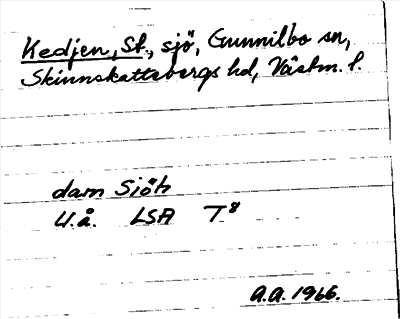 Kedjen, St., sjö, Gunnilbo sn,
Skinnskattebergs hd, Västm. l.
dam Siöh
U.å. LSA T⁸
A.A. 1966.